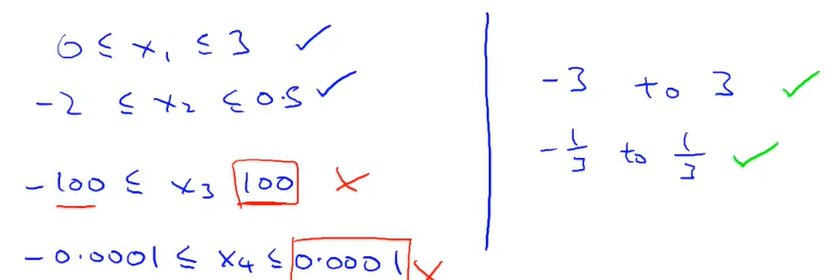 0 ≤ x₁ ≤ 3 ✓
-2 ≤ x₂ ≤ 0.5 ✓
-100 ≤ x₃ 100 ✗
-0.0001 ≤ x₄ ≤ 0.0001 ✗
-3 to 3 ✓
-1/3 to 1/3 ✓